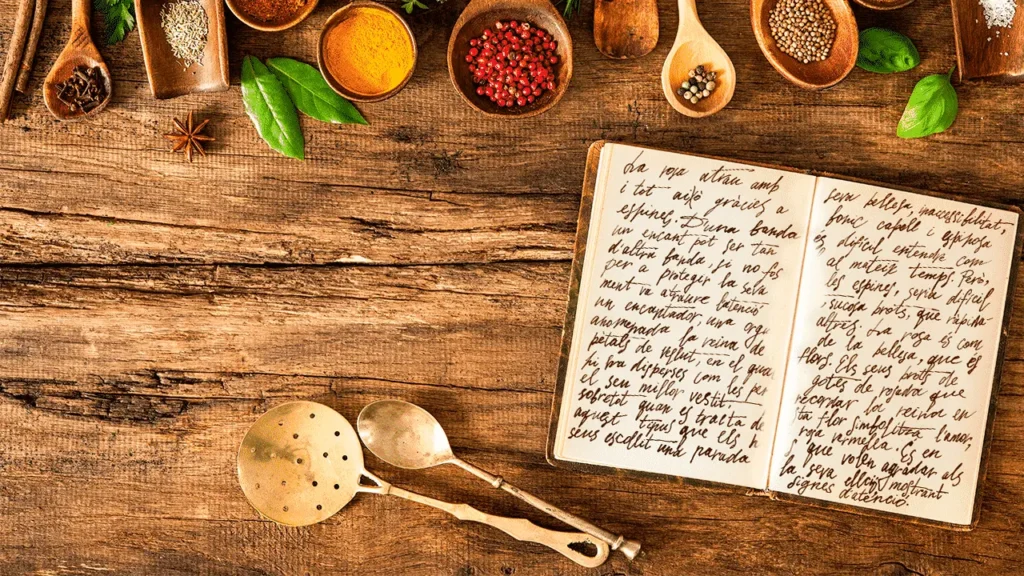 La rosa atrau amb
i tot això gràcies a
espines. D'una banda
un encant pot ser tan
d'altra banda. Si no fos
per a protegir la seva
ment va atraure l'atenció
un encantador, una
anomenada la reina de
pètals de vellut en el qual
hi ha disperses com les per
el seu millor vestit
sobretot quan es tracta de
aquest tipus que els h
seus esedlit una parada
seva bellesa inaccessibilitat,
bonic capoll i espinosa
és difícil entendre com
al mateix temps. Però,
les espines, seria difícil
sucosa brots, que ràpida
altres. La rosa és com
de la bellesa, que és
flors. Els seus brots de
gotes de rosada que
recordar la reina en
ta flor simbolitza l'amor,
roja vermella. És en
i que volen agradar als
la seva elley mostrant
signes d'atenció.